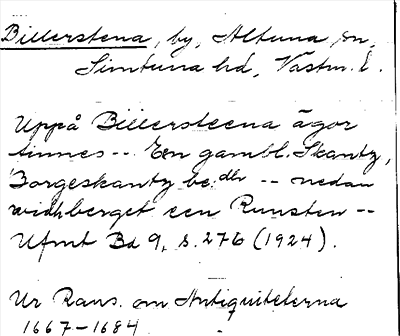 Billerstena, by, Altuna sn,
Simtuna hd, Västm. l.
Uppå Billersteena ägor
finnes -- Een gambl. Skantz,
Borgeskantz be:dh -- nedan
widh berget een Runsten --
Ufmt Bd 9, s. 276 (1924).
Ur Rans. om Antiquiteterna
1667-1684